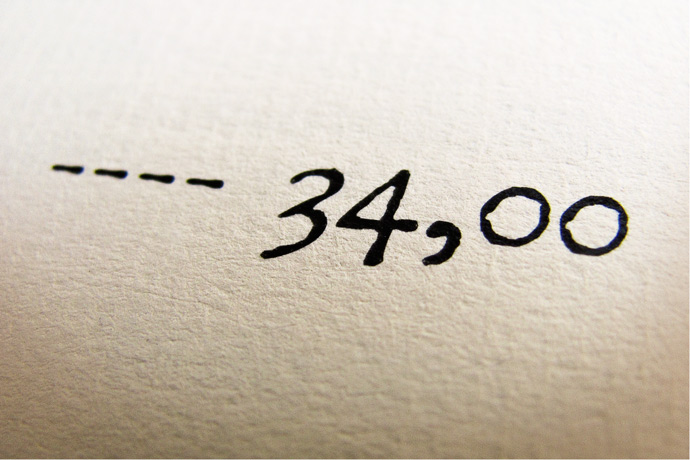 ---- 34,00